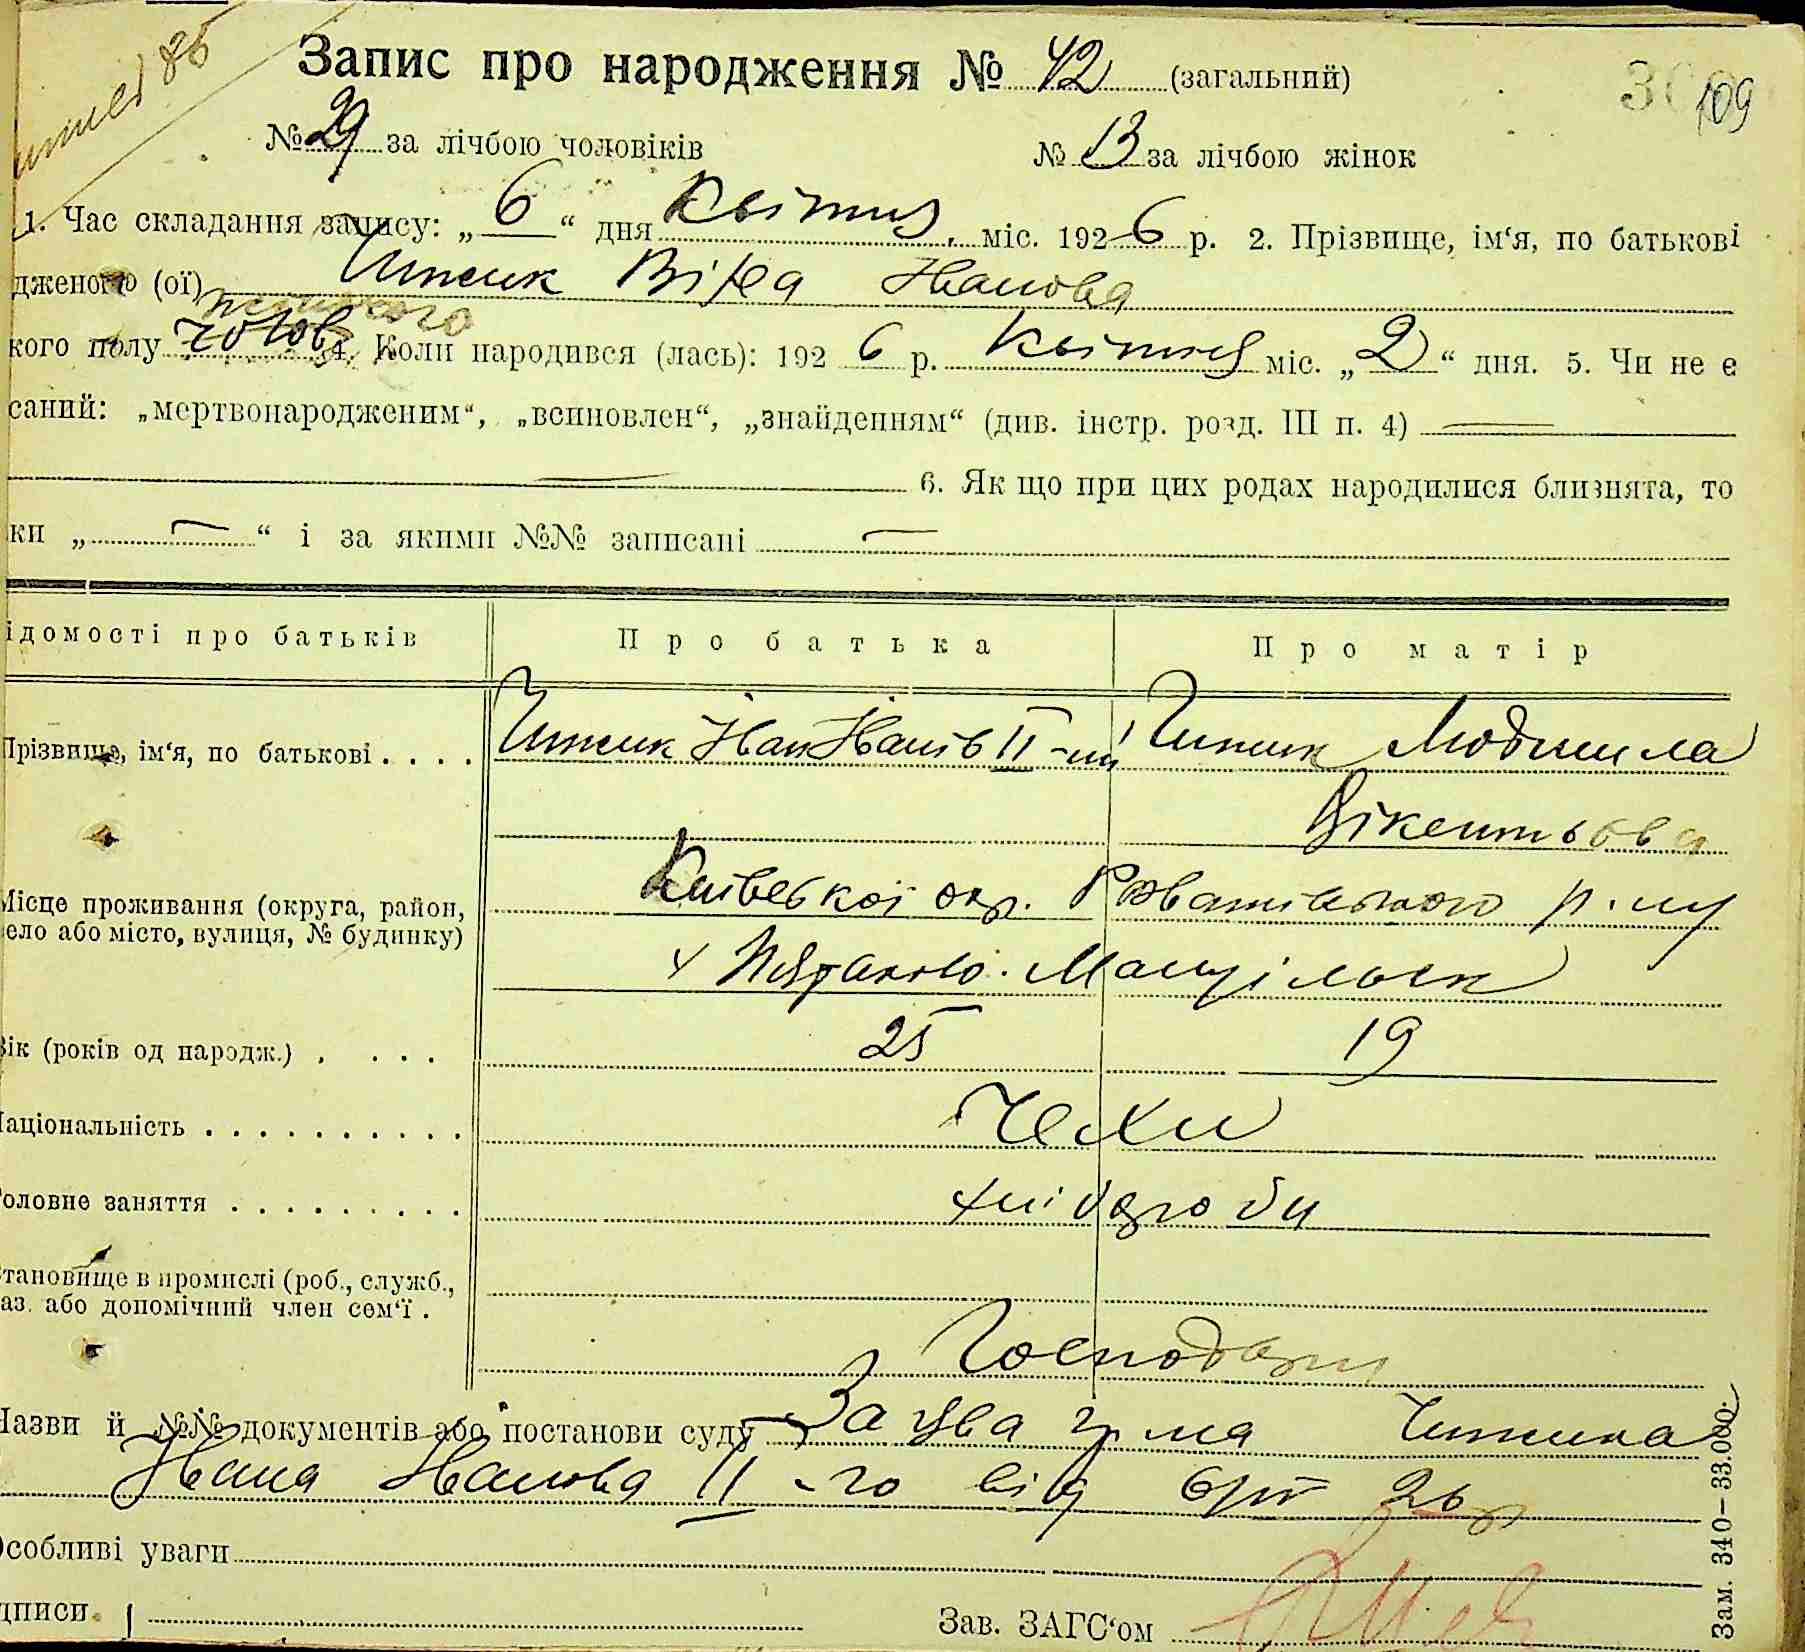 Запис про народження № 42 (загальний)
109
№ 29 за лічбою чоловіків № 13 за лічбою жінок
1. Час складання запису: „ 6 “ дня Квітня, міс. 1926 р. 2. Прізвище, ім‘я, по батькові
дженого (ої) Чижик Віра Іванова
жіночого
кого полу чолов 4. Коли народився (лась): 1926 р. Квітня міс. „ 2 “ дня. 5. Чи не є
саний: „мертвонародженим“, „всиновлен“, „знайденням“ (див. інстр. розд. III п. 4)
6. Як що при цих родах народилися близнята, то
ки „ — “ і за якими №№ записані —
ідомості про батьків Про батька Про матір
Прізвище, ім‘я, по батькові . . . . Чижик Іван Іванів II-ий Чижик Людмила
Вікентьєва
Місце проживання (округа, район, Київської окр. Розважівського р-ну
ело або місто, вулиця, № будинку)
Вік (років од народж.) . . . . 25 19
Національність . . . . . . . . . . . Чехи
Головне заняття . . . . . . . . . . хлібороби
Становище в промислі (роб., служб.,
аз. або допомічний член сем‘ї .
Господарі
Назви й №№ документів або постанови суду Заява гр-на Чижика
Івана Іванова II-го від 6/IV 26 р
Особливі уваги
дписи.
Зав. ЗАГС‘ом
Зам. 340—33.000.